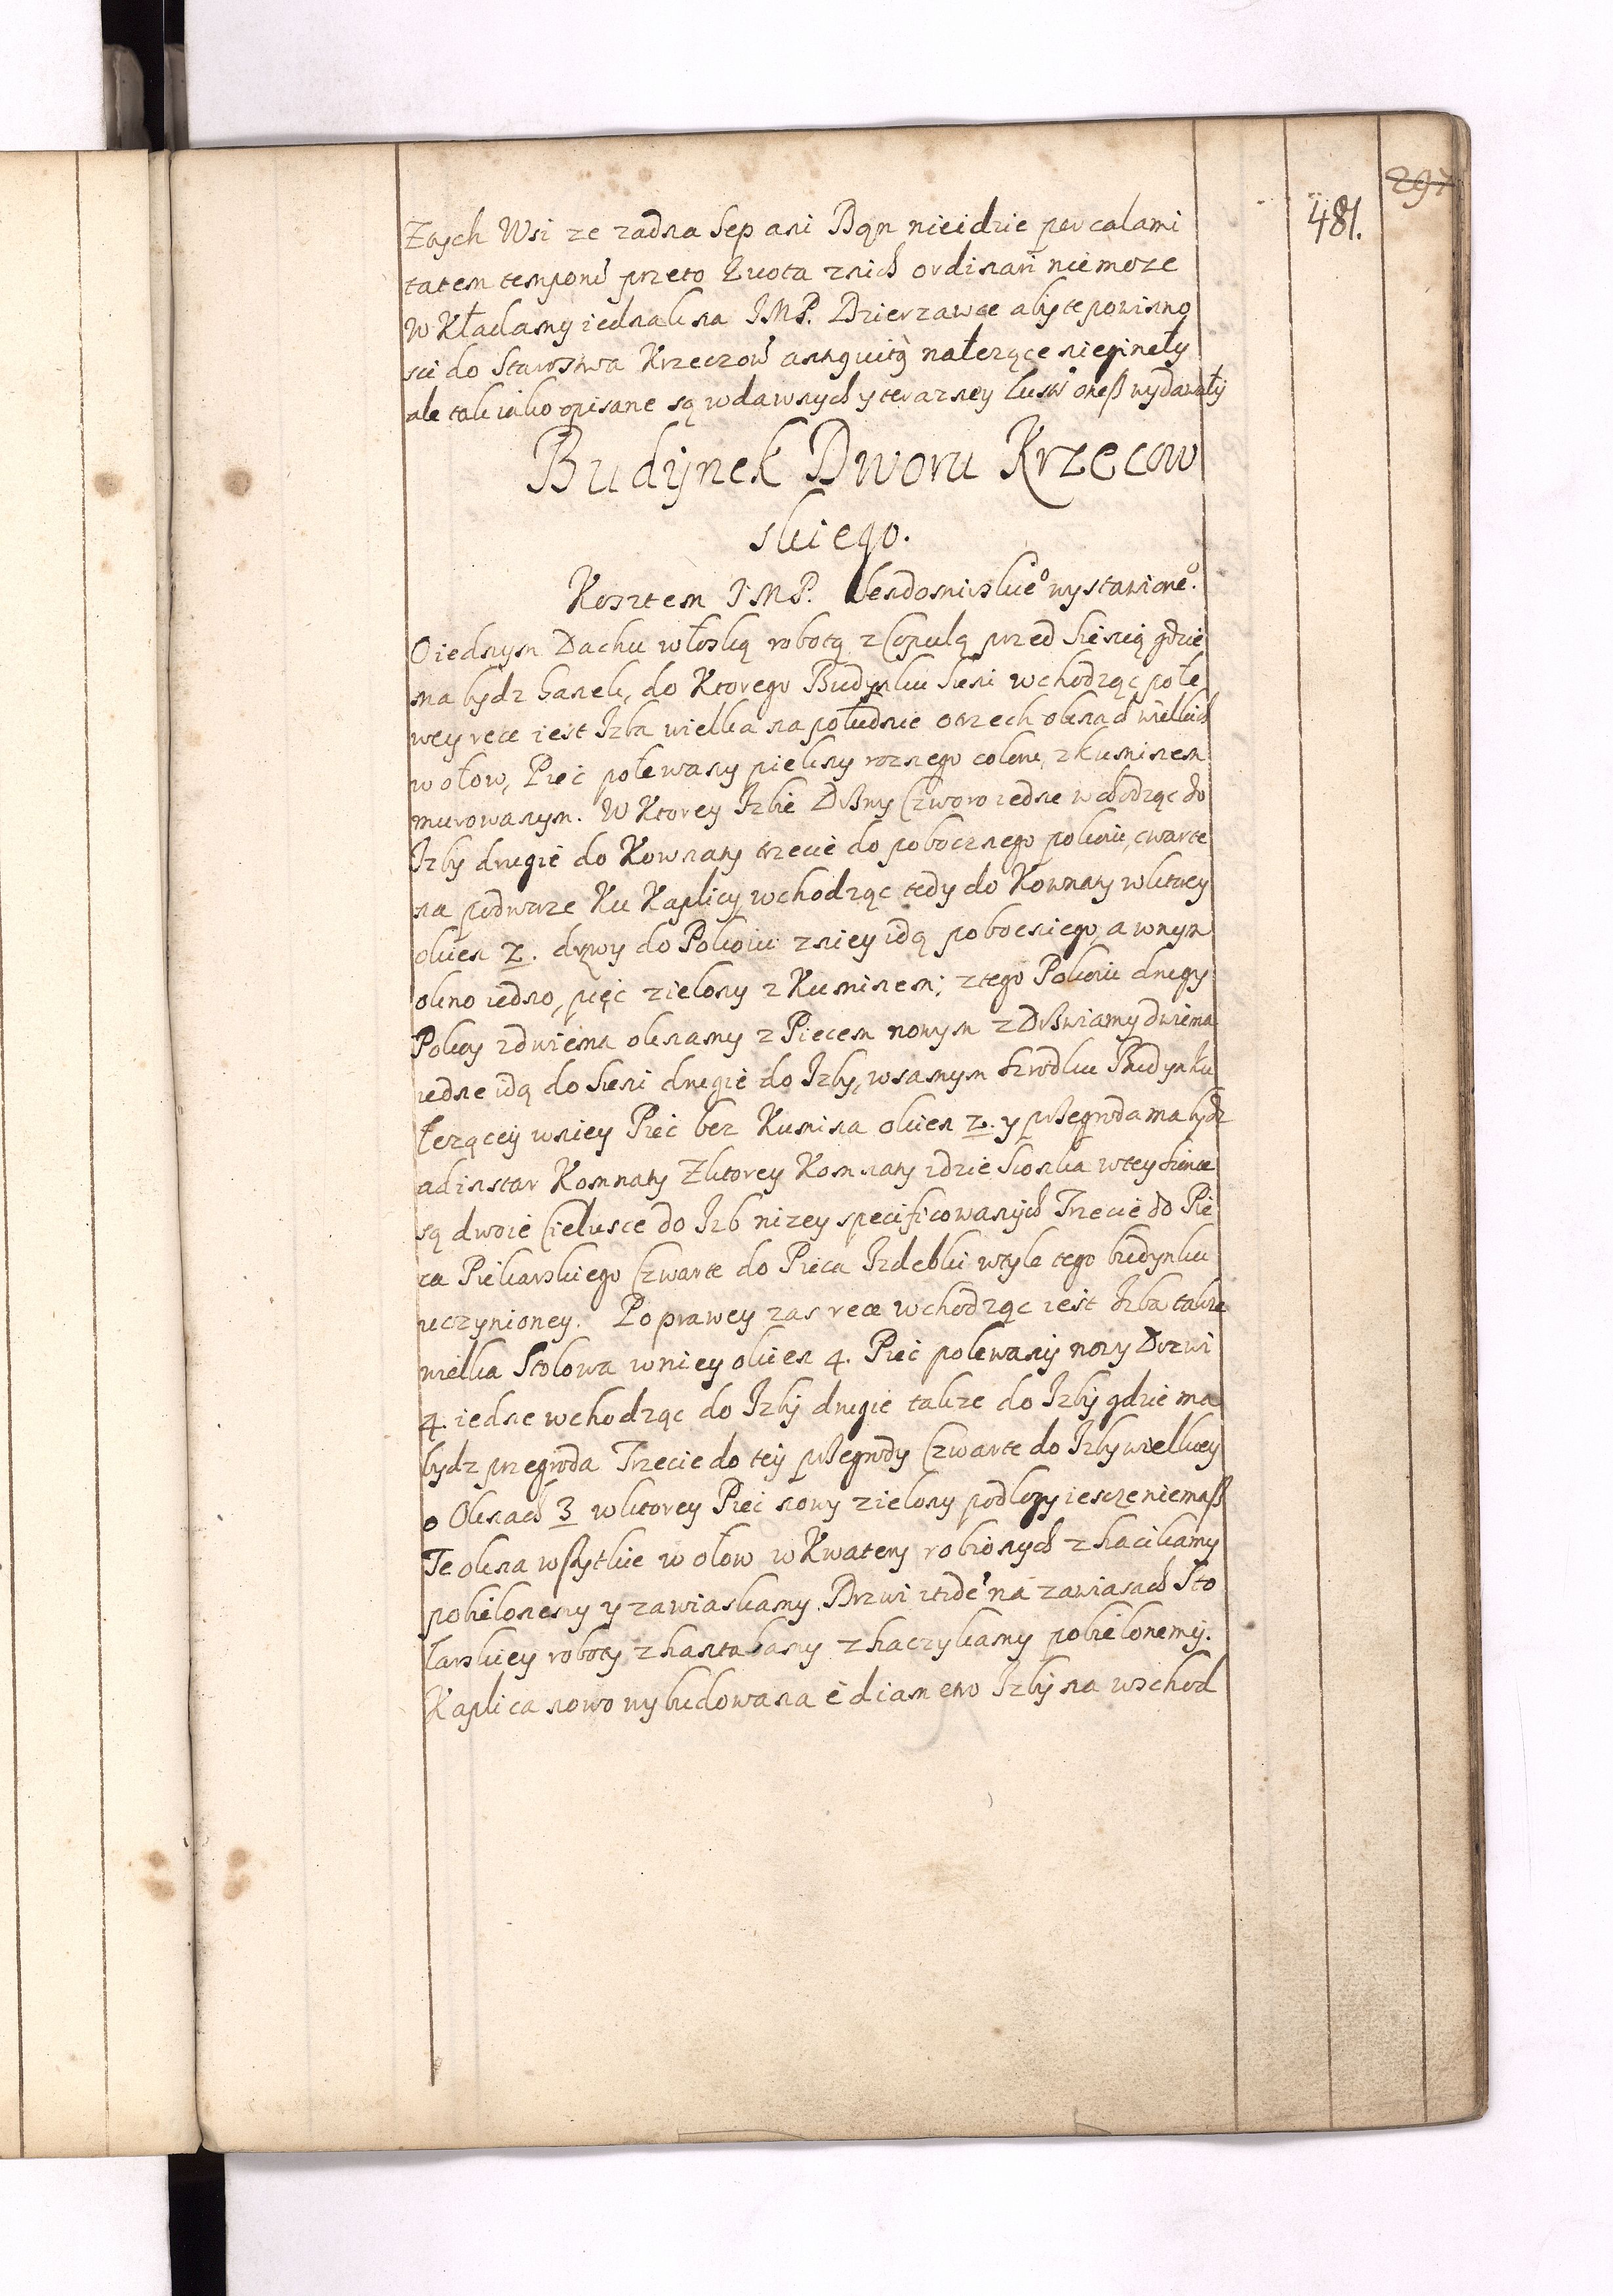 297
481.
Ztych Wsi ze zadna Sep ani Bqn nieidzie per calami
tatem temporũ przeto Quota znich ordinari niemoze
W Kładamy iednak na JMP. Dzierzawce aby te powinno
sci do Starostwa Krzeczow antiquitg nałezące nieginęły
ale tak iako opisane są wdawnych y terazney Lustr onesz wydawały
Budynek Dworu Krzecow
skiego.
Kosztem JMP. wystawione°.
O iednym Dachu włoską robotą z Copulą przed Sienią gdzie
ma bydz Ganek, do Ktorego Budynku Sieni wchodząc po łe
wey rece iest Izba wielka na południe o trzech oknach wielkich
w ołow, Piec polewany piekny roznego coloru, z kuminem
murowanym. W Ktorey Izbie Drzwy Czworo iedne wchodząc do
Izby drugie do Kownaty trzecie do pobocznego pokoiu, cwarte
na podworze Ku Kaplicy wchodząc tedy do Kownaty wktorey
okien 2. drzwy do Pokoiu zniey idą pobocniego, a wnym
okno iedno, piec zielony z Kuminem; ztego Pokoiu drugy
Pokoy zdwiema oknamy z Piecem nowym z Drzwiamy dwiema
iedne idą do Sieni drugie do Izby, wsamym szrodku Budynku
lezącey wniey Piec bez Kumina okien 2. y przegroda ma bydz
ad instar Komnaty Zktorey Komnaty idzie Sionka wtey sience
są dwoie Cieluscie do Izb nizey specificowanych Trzecie do Pie
ca Piekarskiego Czwarte do Pieca Izdebki wtyle tego budynku
uczynioney. Po prawey zas rece wchodząc iest Izba takze
wielka Stolowa wniey okien 4. Piec polewany nowy Drzwi
4. iedne wchodząc do Izby drugie takze do Izby gdzie ma
bydz przegroda Trzecie do tey przegrody Czwarte do Izby wielkiey
o Oknach 3 wktorey Piec nowy zielony podłogy iescze niemasz
Te okna wszytkie w ołow w Kwatery robionych z haczikamy
pobielonemy y zawiaskamy. Drzwi na zawiasach Sto
larskiey roboty z hantabamy z haczykamy pobielonemy.
Kaplica nowo wybudowana e diametro Izby na wschod